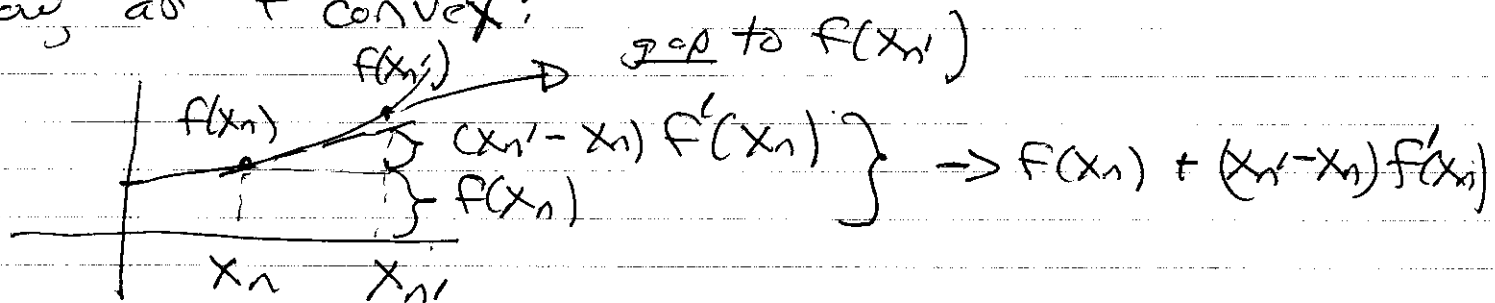 as f convex:
gap to f(xₙ′)
f(xₙ′)
f(xₙ)
(xₙ′ - xₙ) f′(xₙ) } → f(xₙ) + (xₙ′ - xₙ) f′(xₙ)
} f(xₙ)
xₙ xₙ′